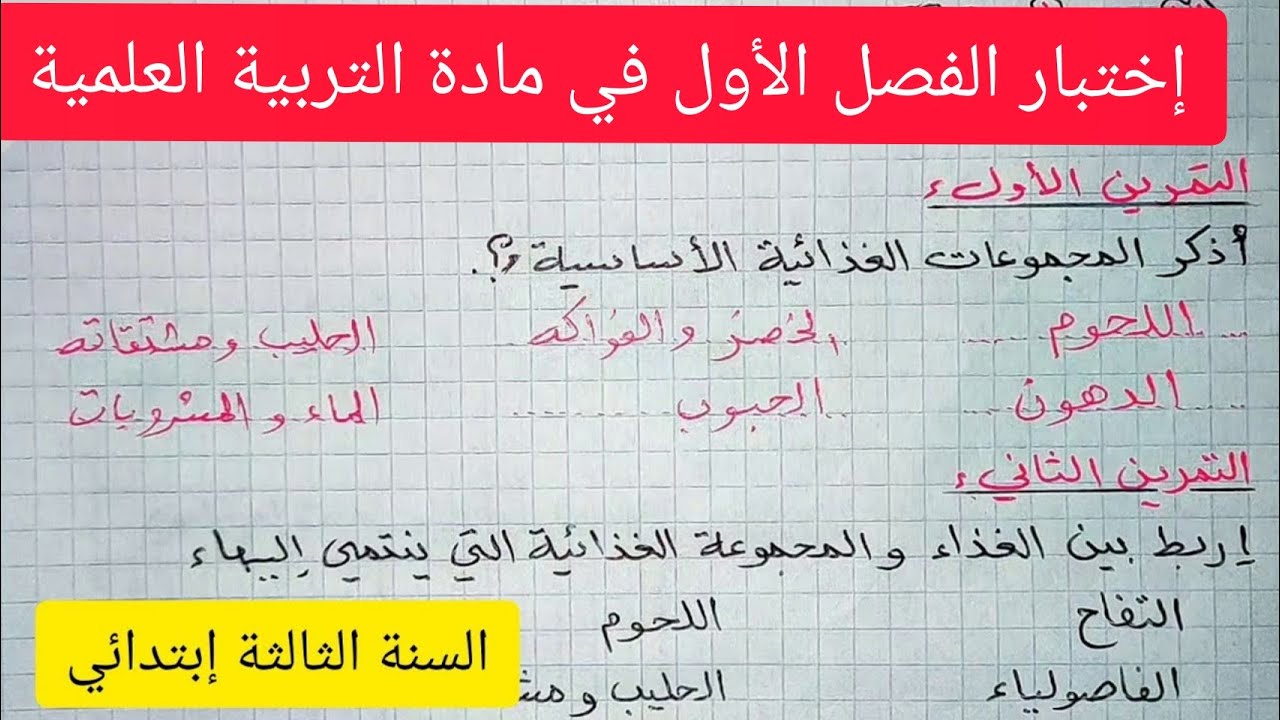 إختبار الفصل الأول في مادة التربية العلمية
التمرين الأول:
أذكر المجموعات الغذائية الأساسية ؟.
اللحوم ..... الخضر والفواكه ..... الحليب ومشتقاته
الدهون ..... الحبوب ..... الماء و المشروبات
التمرين الثاني:
إربط بين الغذاء والمجموعة الغذائية التي ينتمي إليها:
التفاح اللحوم
الفاصولياء الحليب
السنة الثالثة إبتدائي